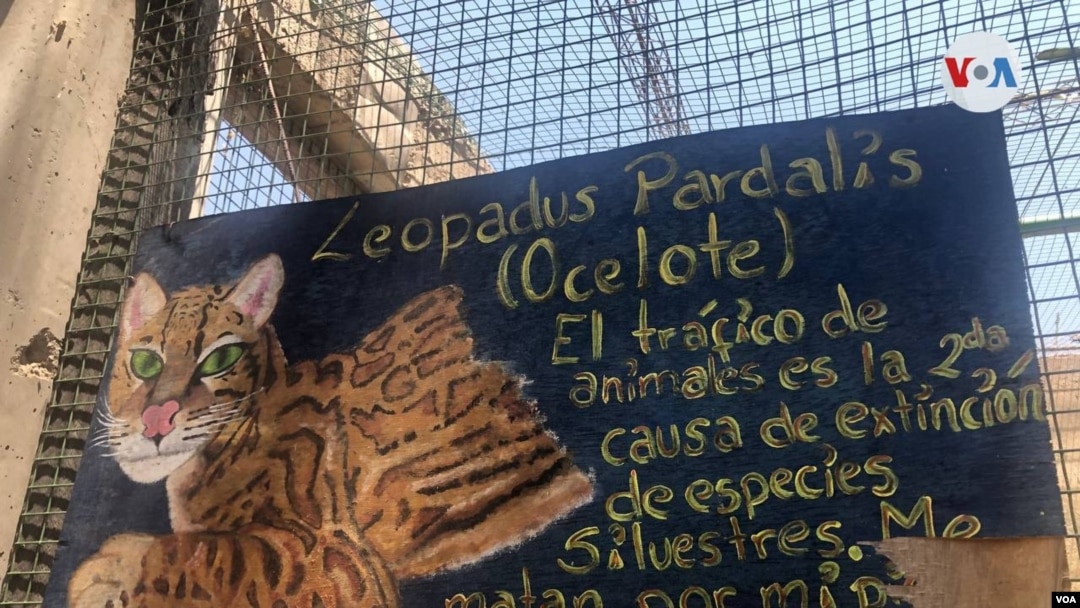 VOA
Leopadus Pardalis
(Ocelote)
El tráfico de
animales es la 2da
causa de extinción
de especies
Silvestres. Me
matan por mi
VOA